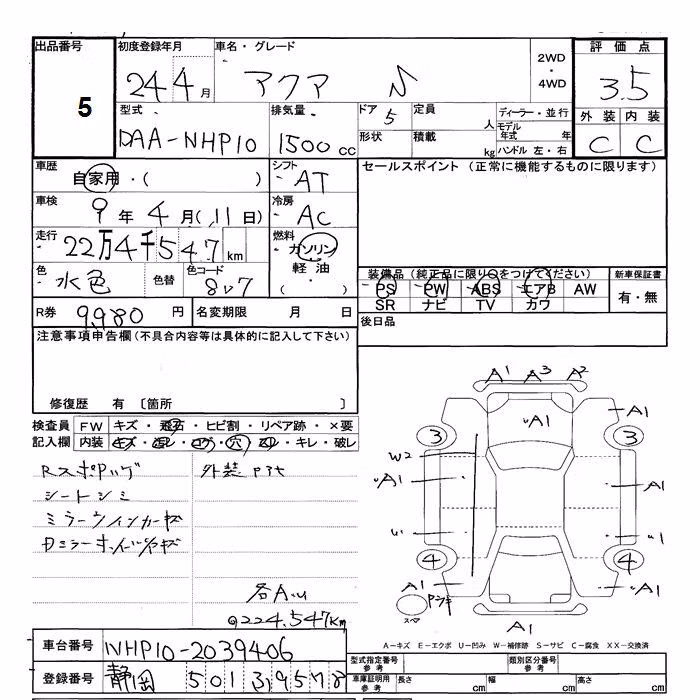 出品番号 初度登録年月 車名・グレード 評価点
5 24 4月 アクア 2WD・4WD 3.5
型式 排気量 ドア 定員 ディーラー・並行 外装 内装
DAA-NHP10 1500cc 5 人 モデル年式 年 C C
形状 積載 kg ハンドル 左・右
車歴 自家用・( ) シフト AT セールスポイント (正常に機能するものに限ります)
車検 9年4月(11日) 冷房 AC
走行 22万4千547km 燃料 ガソリン 軽油 ( )
色 水色 色替 色コード 8V7 装備品 (純正品に限り○をつけてください) 新車保証書
PS PW ABS エアB AW 有・無
SR ナビ TV カワ
R券 9,980円 名変期限 月 日 後日品
注意事項申告欄(不具合内容等は具体的に記入して下さい)
修復歴 有 〔箇所 〕
検査員 FW キズ・飛石・ヒビ割・リペア跡・×要
記入欄 内装 キズ・ ・コゲ・穴・ ・キレ・破レ
A1 A3 A2
A1 A1
3 3
W2
A1 A1
1
4 4
A1 A1
スペア
A1
シートシミ 外装
ミラーウインカーキズ
224,547km
A-キズ E-エクボ U-凹み W-補修跡 S-サビ C-腐食 XX-交換済
車台番号 NHP10-2039406 型式指定番号 参考 類別区分番号 参考
登録番号 静岡 501 3 9578 車庫証明用 参考 長さ cm 幅 cm 高さ cm